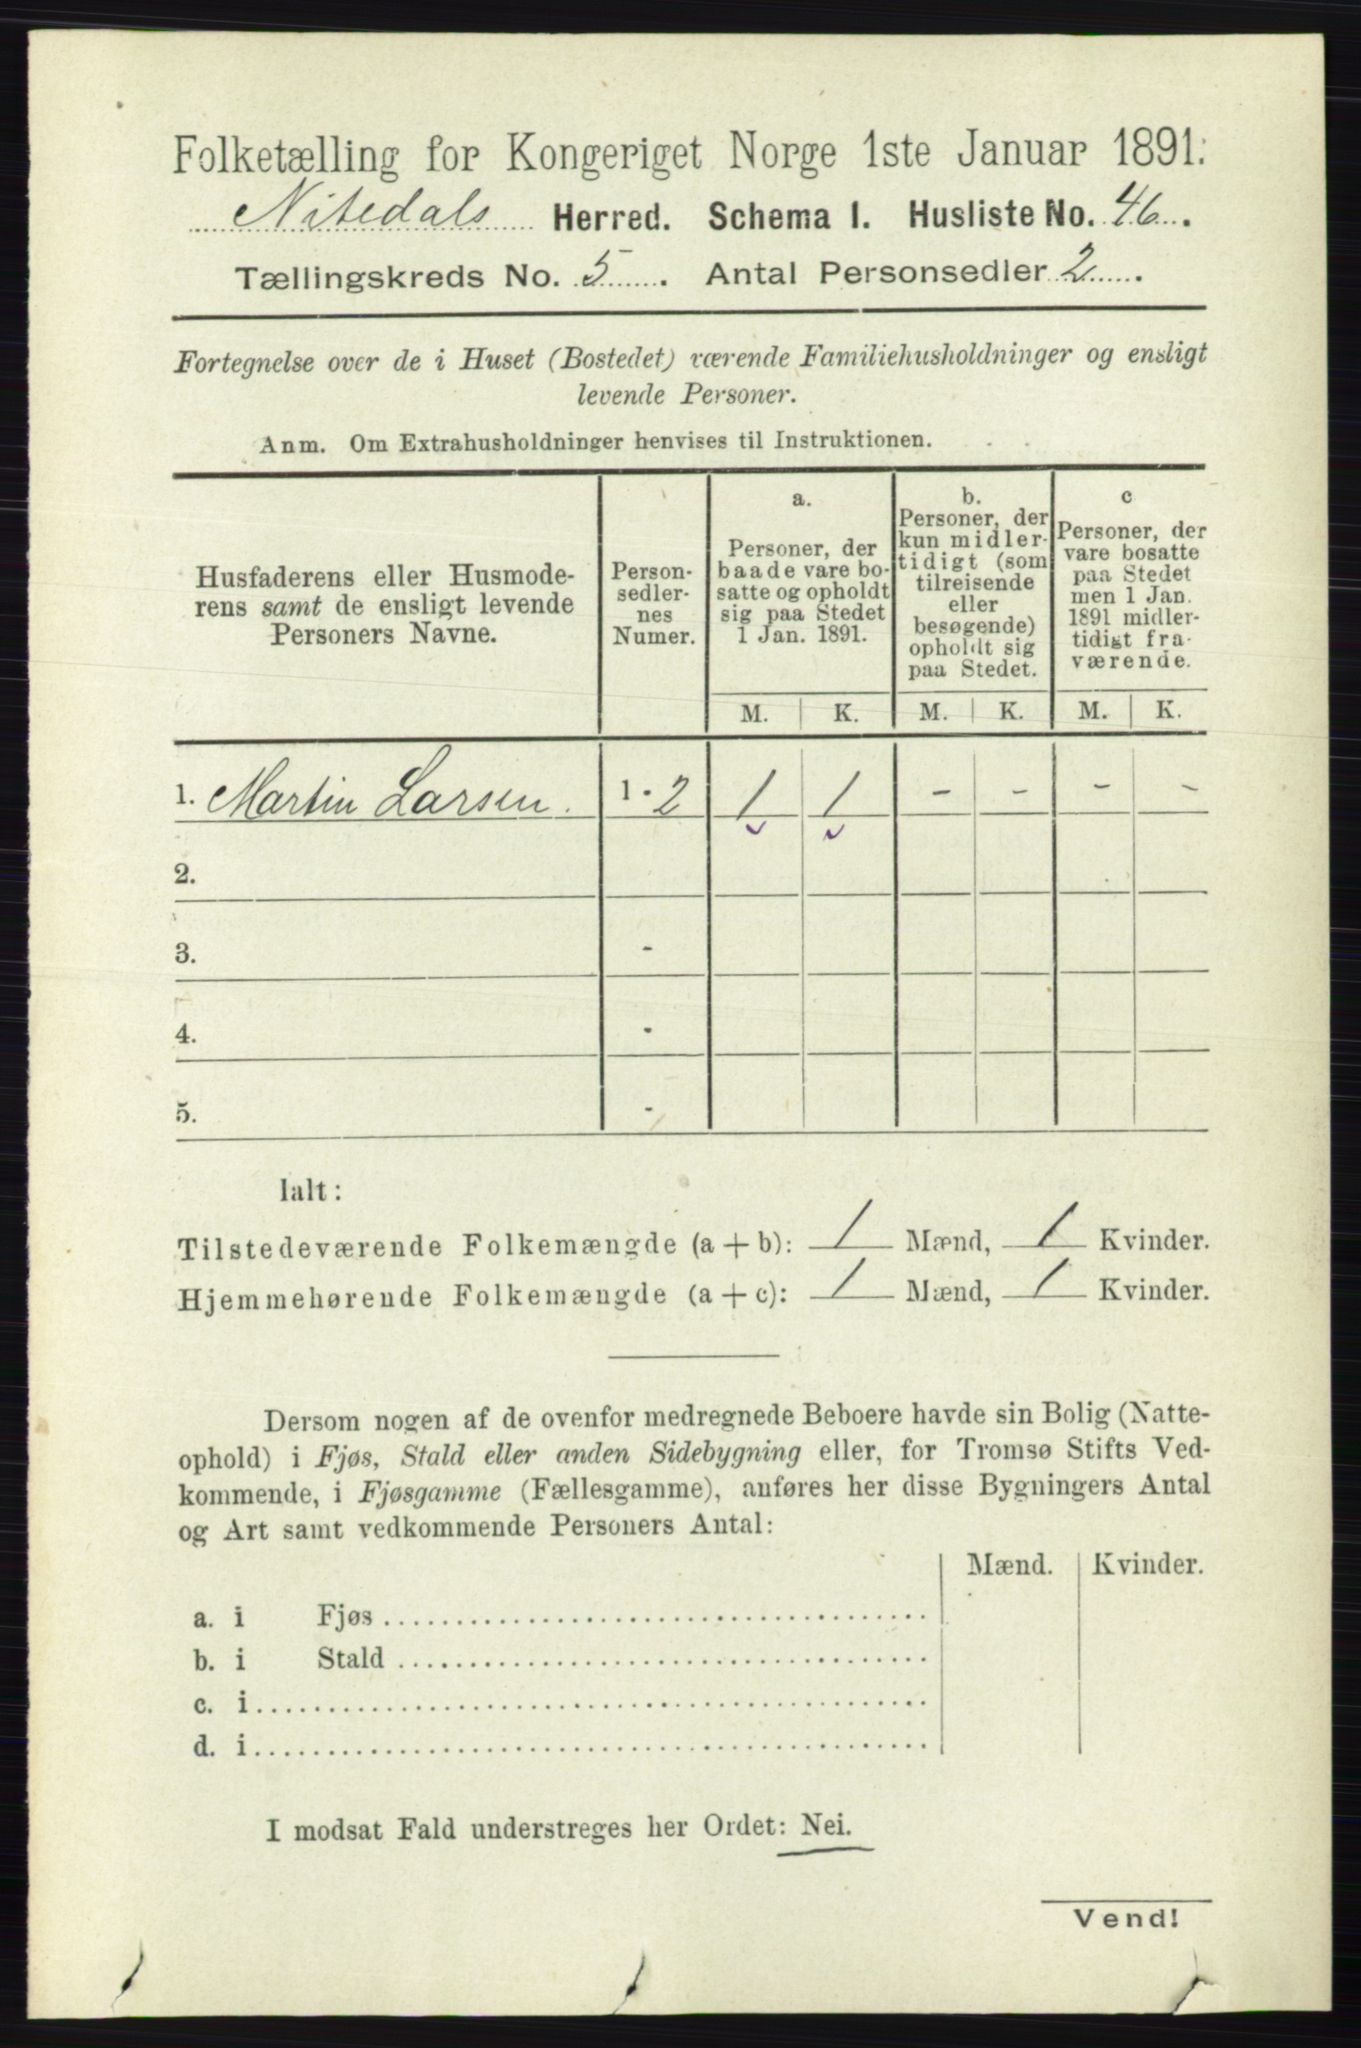 Folketælling for Kongeriget Norge 1ste Januar 1891.
Nitedals Herred. Schema 1. Husliste No. 46.
Tællingskreds No. 5. Antal Personsedler 2.
Fortegnelse over de i Huset (Bostedet) værende Familiehusholdninger og ensligt
levende Personer.
Anm. Om Extrahusholdninger henvises til Instruktionen.
Husfaderens eller Husmode-
rens samt de ensligt levende
Personers Navne.
Person-
sedler-
nes
Numer.
a.
Personer, der
baade vare bo-
satte og opholdt
sig paa Stedet
1 Jan. 1891.
b.
Personer, der
kun midler-
tidigt (som
tilreisende
eller
besøgende)
opholdt sig
paa Stedet.
c
Personer, der
vare bosatte
paa Stedet
men 1 Jan.
1891 midler-
tidigt fra-
værende.
M. K. M. K. M. K.
1. Martin Larsen. 1 - 2 1 1 - - - -
2.
3. -
4. -
5. -
Ialt:
Tilstedeværende Folkemængde (a + b): 1 Mænd, 1 Kvinder.
Hjemmehørende Folkemængde (a + c): 1 Mænd, 1 Kvinder.
Dersom nogen af de ovenfor medregnede Beboere havde sin Bolig (Natte-
ophold) i Fjøs, Stald eller anden Sidebygning eller, for Tromsø Stifts Ved-
kommende, i Fjøsgamme (Fællesgamme), anføres her disse Bygningers Antal
og Art samt vedkommende Personers Antal:
Mænd. Kvinder.
a. i Fjøs
b. i Stald
c. i
d. i
I modsat Fald understreges her Ordet: Nei.
Vend!